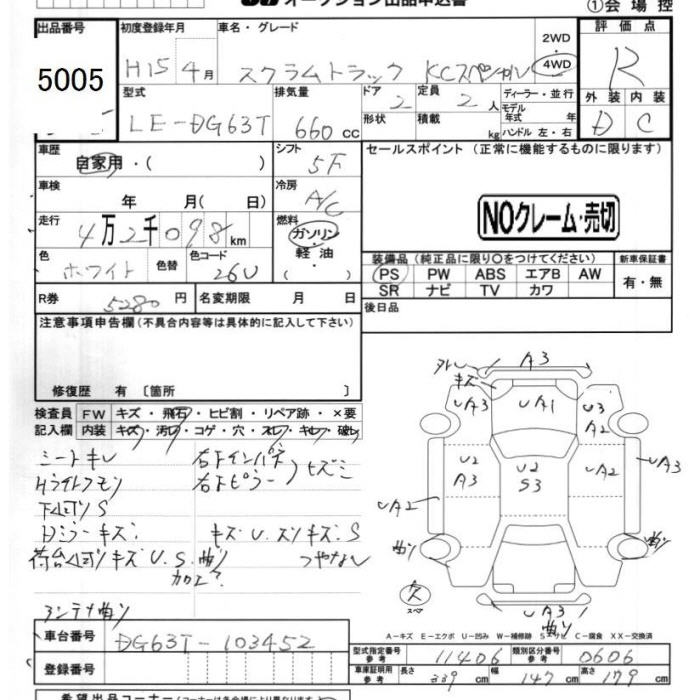 オークション出品申込書
①会場控
出品番号 初度登録年月 車名・グレード 評価点
5005 H15年4月 スクラムトラック KCスペシャル 2WD 4WD R
型式 排気量 ドア 定員 ディーラー・並行 外装 内装
LE-DG63T 660cc 2 2人 モデル年式 年 D C
形状 積載 kg ハンドル 左・右
車歴 自家用・( ) シフト 5F セールスポイント (正常に機能するものに限ります)
車検 年 月( 日) 冷房 A/C
NOクレーム・売切
走行 4万2千098km 燃料 ガソリン・軽油・( )
色 ホワイト 色替 色コード 26U
装備品 (純正品に限り○をつけてください) 新車保証書
PS PW ABS エアB AW 有・無
SR ナビ TV カワ
R券 5280円 名変期限 月 日 後日品
注意事項申告欄 (不具合内容等は具体的に記入して下さい)
修復歴 有 〔箇所 〕
検査員 FW キズ・飛石・ヒビ割・リペア跡・×要
記入欄 内装 キズ・汚レ・コゲ・穴・スレ・キレ・破レ
シートキレ 右下インパネ
右下ピラー
下回りS
キズU.スリキズ.S
キズU.S.曲り
加工?
アンテナ曲り
A3
キズ
UA3 UA1 U3 A2
U2 A3 U2 S3 UA2 UA3
UA2
曲り 曲り
欠 スペア
UA3
曲り
A-キズ E-エクボ U-凹み W-補修跡 S-サビ C-腐食 XX-交換済
車台番号 DG63T-103452 型式指定番号 参考 11406 類別区分番号 参考 0606
登録番号 車庫証明用 参考 長さ 339cm 幅 147cm 高さ 179cm
希望出品コーナー